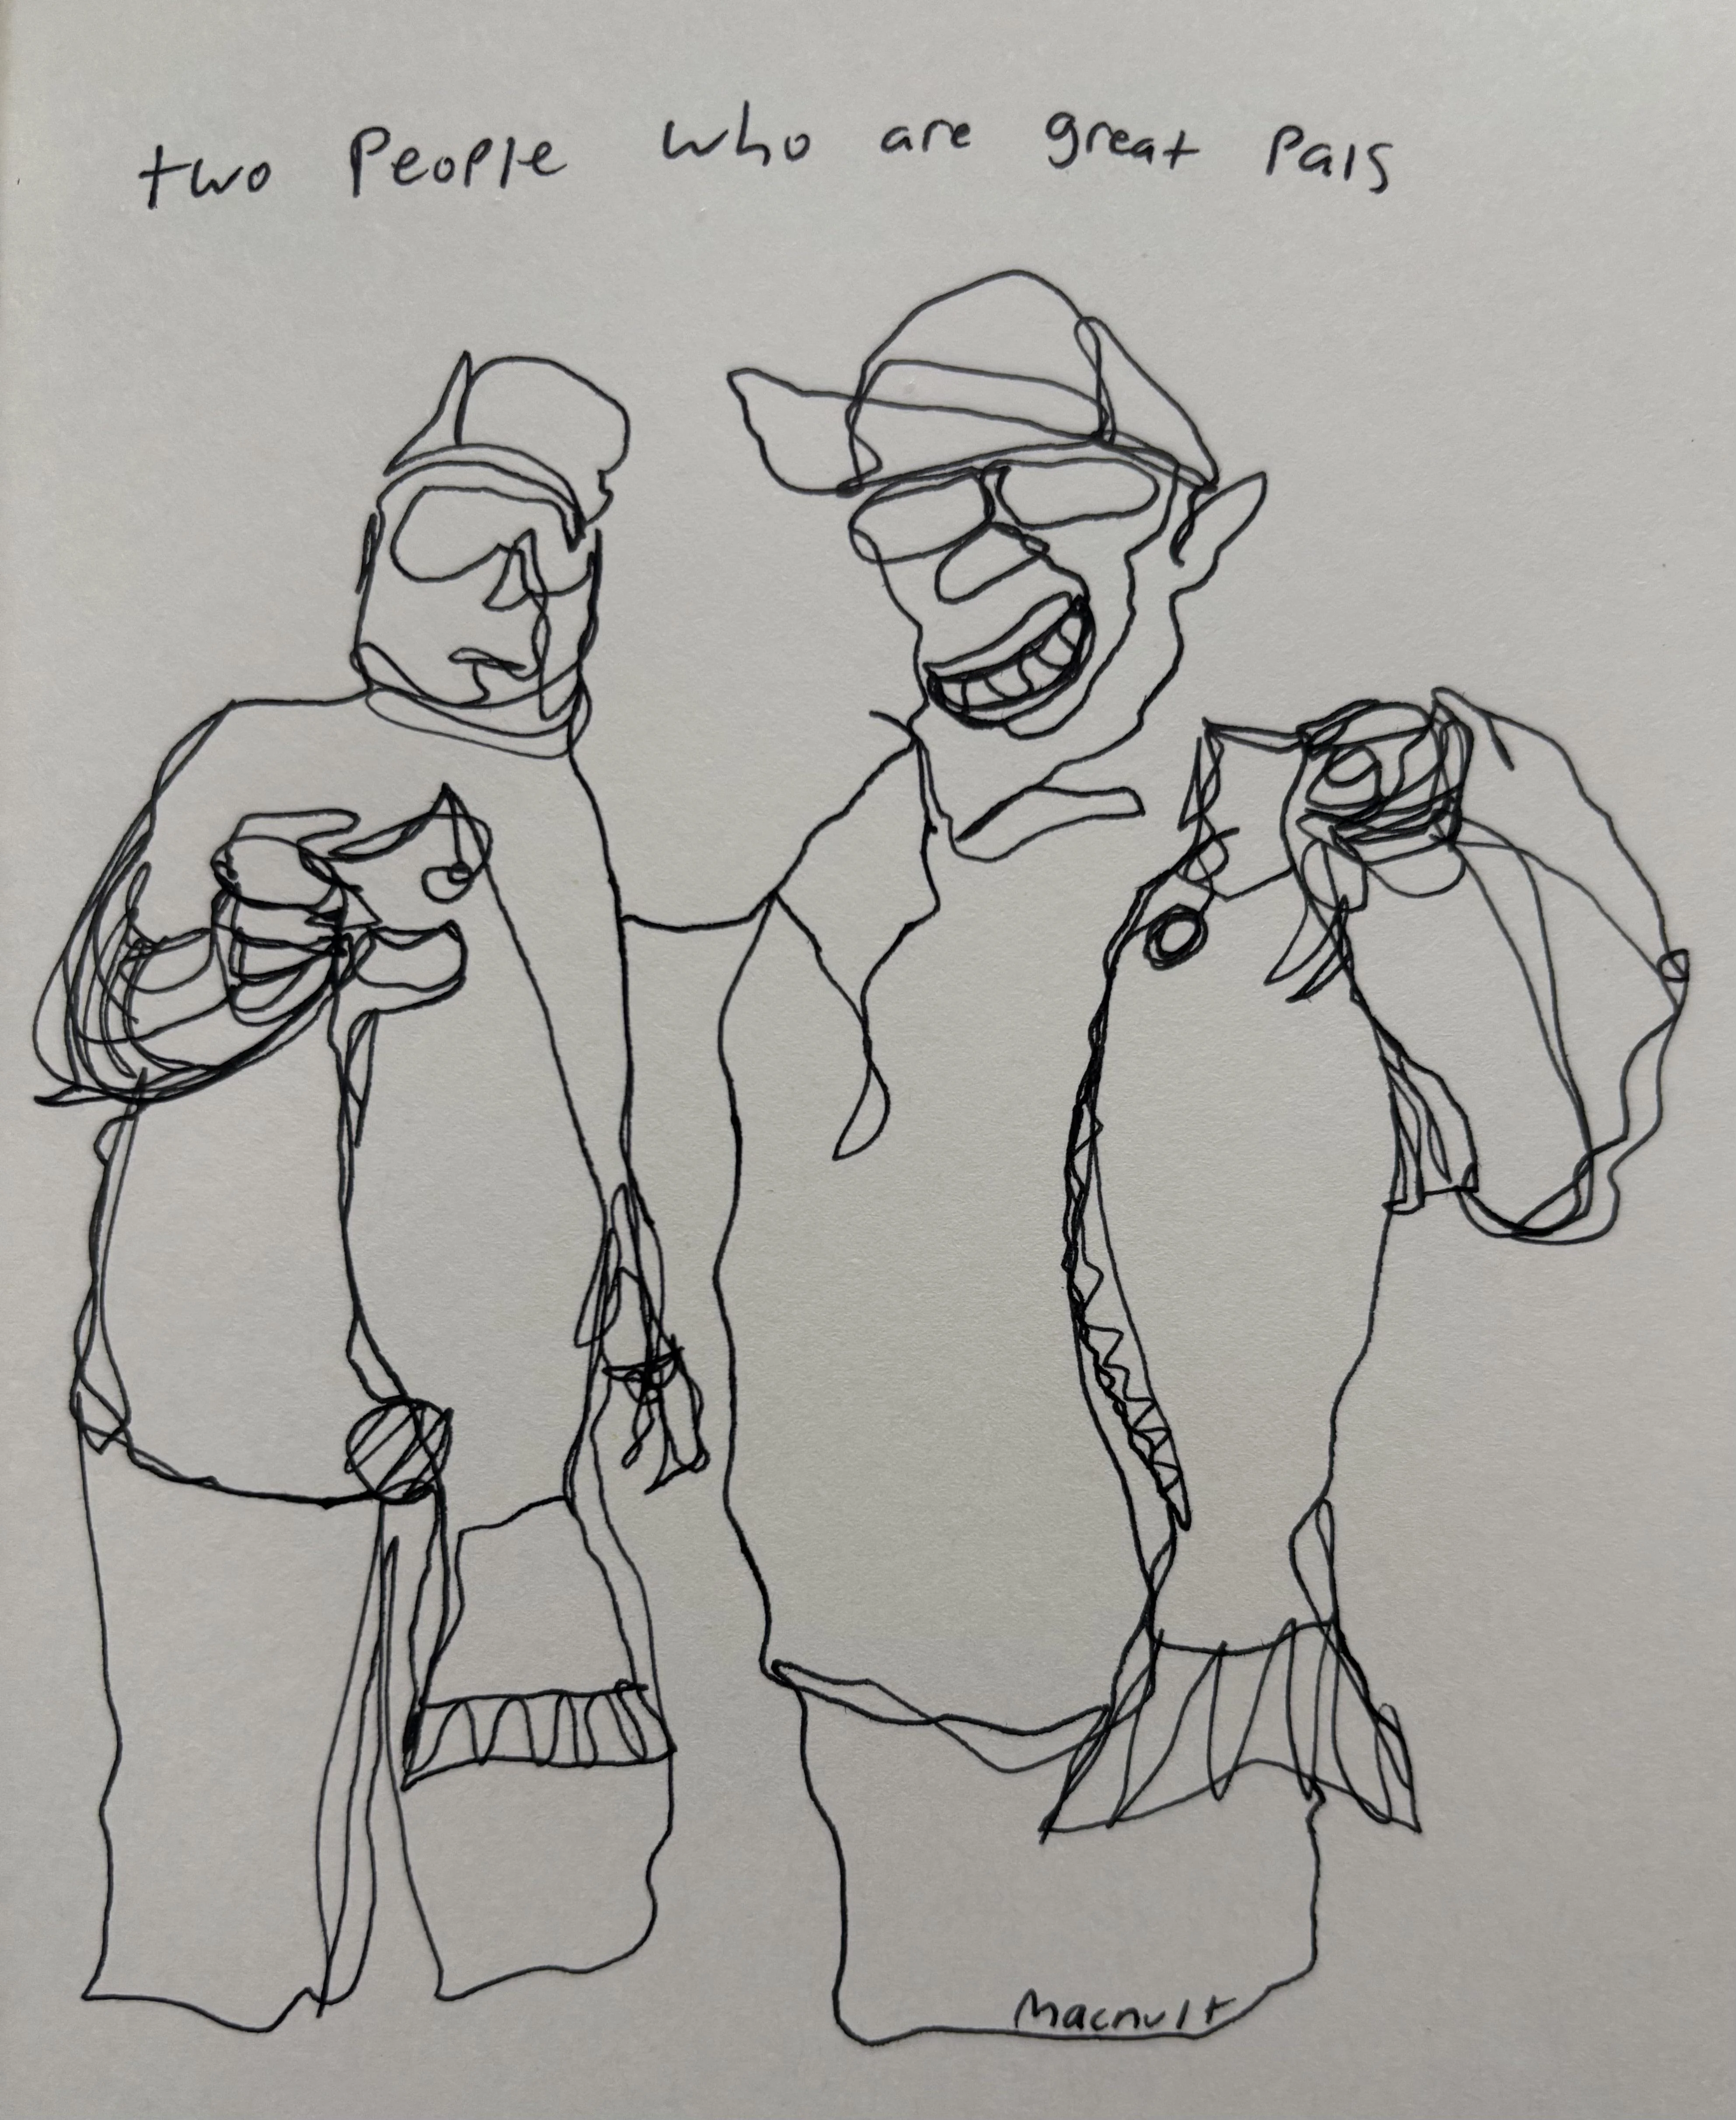 two People who are great Pals
Macnult